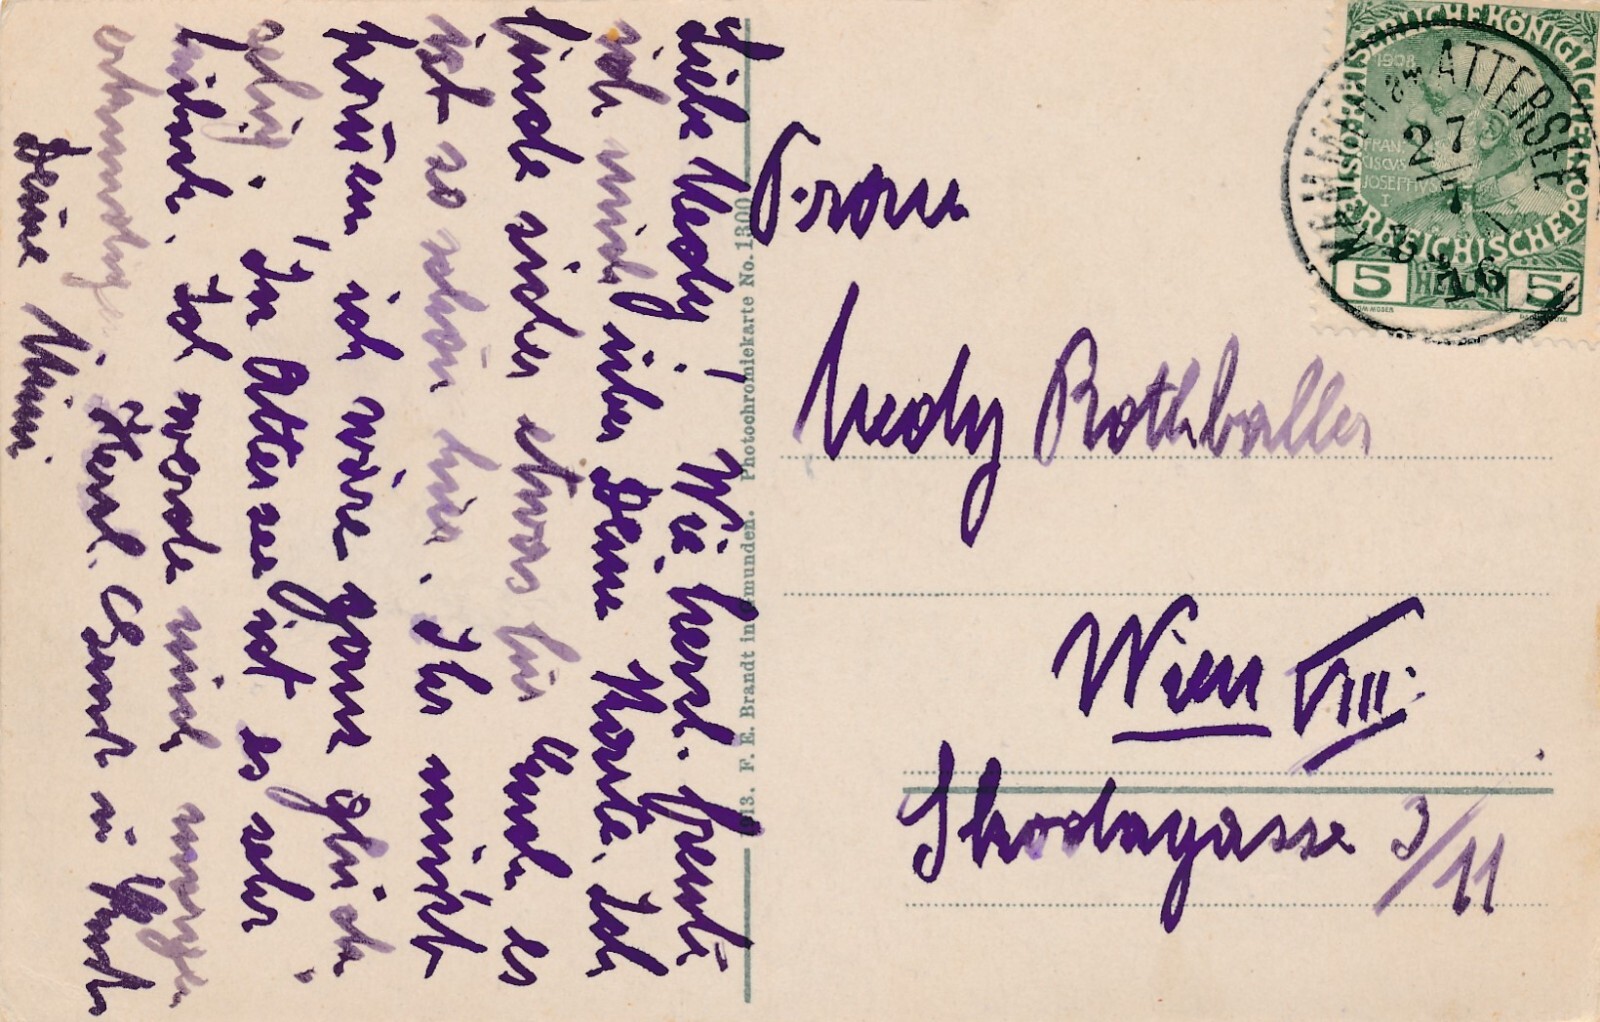 Liebe Hedy! Wie herzl. freute
ich mich über Deine Karte. Ich
finde sicher etwas für Euch, es
ist so schön hier. Ihr müßt
kommen, ich wäre ganz glück-
selig. Im Attersee ist es sehr
Ich werde mich morgen
Herzl. Gruß u. Kuss
Deine Mimi
1913. F. E. Brandt in Gmunden. Photochromiekarte No. 1300
Frau
Hedy Rothballer
Wien VIII.
Skodagasse 3/11
KAISERLICHE KÖNIGLICHE ÖSTERREICHISCHE POST
1908
FRANCISCVS JOSEPHVS I
5 HELLER 5
ATTERSEE
27